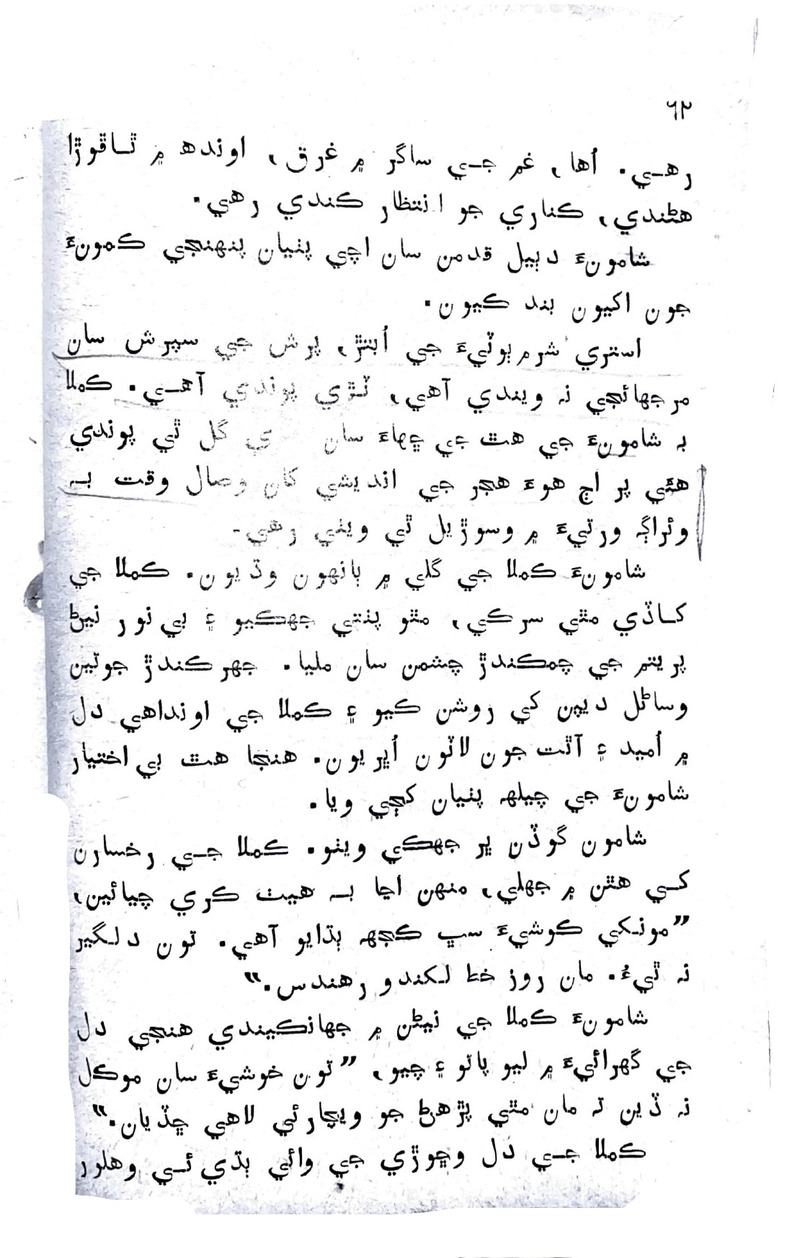 ٦٢
رهي. اُها، غم جي ساگر ۾ غرق، اونده ۾ ٿاقوڙا
هڻندي، ڪناري جو انتظار ڪندي رهي.
شامونءَ دٻيل قدمن سان اچي پٺيان پنهنجي ڪمونءَ
جون اکيون بند ڪيون.
استري شرم ٻوٽيءَ جي اُبتڙ، پرش جي سپرش سان
مرجهائجي نہ ويندي آهي، ٽڙي پوندي آهي. ڪملا
بہ شامونءَ جي هٿ جي ڇهاءَ سان ي گل ٿي پوندي
هئي پر اڄ هوءَ هجر جي انديشي کان وصال وقت بہ
وئراڳ ورتيءَ ۾ وسوڙيل ٿي ويٺي رهي.
شامونءَ ڪملا جي ڳلي ۾ ٻانهون وڌيون. ڪملا جي
کاڏي مٿي سرڪي، مٿو پٺتي جهڪيو ۽ بي نور نيڻ
پريتم جي چمڪندڙ چشمن سان مليا. جهرڪندڙ جوتين
وساڻل ديپن کي روشن ڪيو ۽ ڪملا جي اونداهي دل
۾ اُميد ۽ آٿت جون لاٽون اُڀريون. هنجا هٿ بي اختيار
شامونءَ جي چيلهہ پٺيان کڄي ويا.
شامون گوڏن ڀر جهڪي ويٺو. ڪملا جي رخسارن
کي هٿن ۾ جهلي، منهن اڃا بہ هيٺ ڪري چيائين،
”مونکي ڪوشيءَ سڀ ڪجهہ ٻڌايو آهي. تون دلگير
نہ ٿيءُ. مان روز خط لکندو رهندس.“
شامونءَ ڪملا جي نيڻن ۾ جهانڪيندي هنجي دل
جي گهرائيءَ ۾ ليو پاتو ۽ چيو، ”تون خوشيءَ سان موڪل
نہ ڏين تہ مان مٿي پڙهڻ جو ويچار ئي لاهي ڇڏيان.“
ڪملا جي دل وڇوڙي جي وائي ٻڌي ئي وهلور